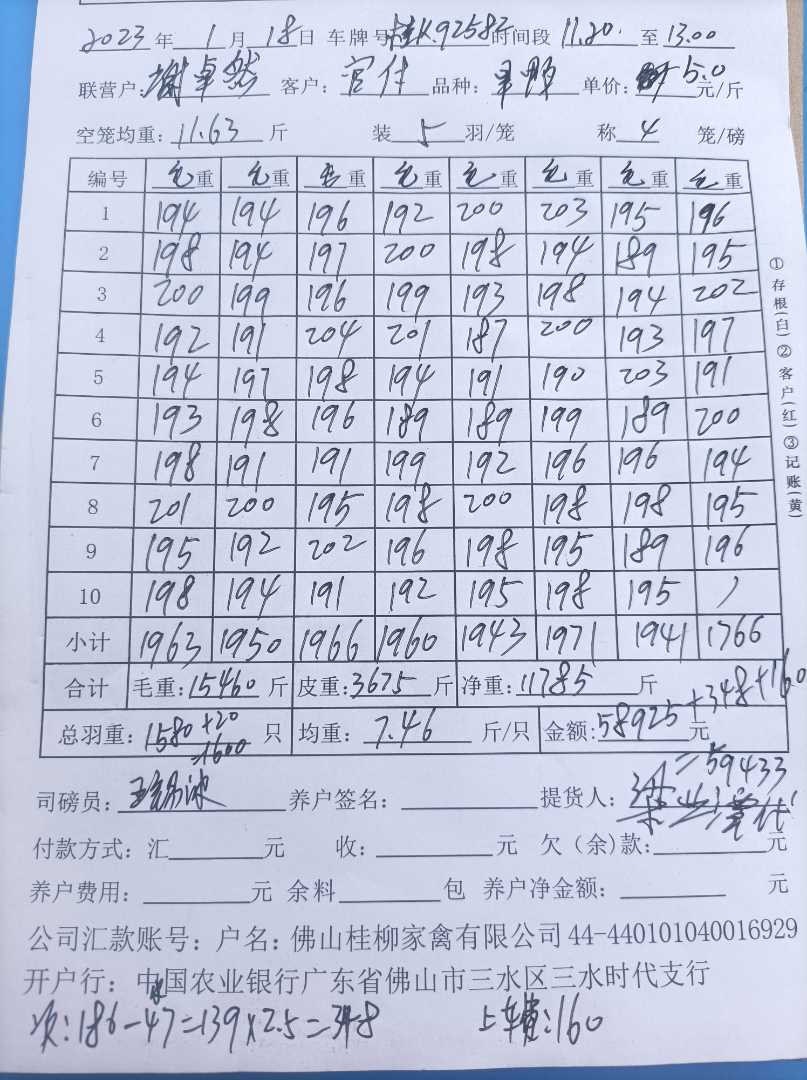 2023年1月18日 车牌号桂K92582时间段11.20.至13.00
联营户:谢卓然 客户:官伟 品种: 单价:5.0元/斤
空笼均重:11.63斤 装5羽/笼 称4笼/磅
编号 毛重 毛重 毛重 毛重 毛重 毛重 毛重 毛重
1 194 194 196 192 200 203 195 196
2 198 194 197 200 198 194 189 195
3 200 199 196 199 193 198 194 202
4 192 191 204 201 187 200 193 197
5 194 197 198 194 191 190 203 191
6 193 198 196 189 189 199 189 200
7 198 191 191 199 192 196 196 194
8 201 200 195 198 200 198 198 195
9 195 192 202 196 198 195 189 196
10 198 194 191 192 195 198 195 /
小计 1963 1950 1966 1960 1943 1971 1941 1766
合计 毛重:15460斤 皮重:3675斤 净重:11785斤
总羽重:1580+20=1600只 均重:7.46斤/只 金额:58925元+348+160
=59433
司磅员: 养户签名: 提货人:
付款方式:汇 元 收: 元 欠(余)款: 元
养户费用: 元 余料 包 养户净金额: 元
公司汇款账号:户名:佛山桂柳家禽有限公司44-440101040016929
开户行:中国农业银行广东省佛山市三水区三水时代支行
:186-47=139×2.5=348 上车费:160
①存根(白)②客户(红)③记账(黄)